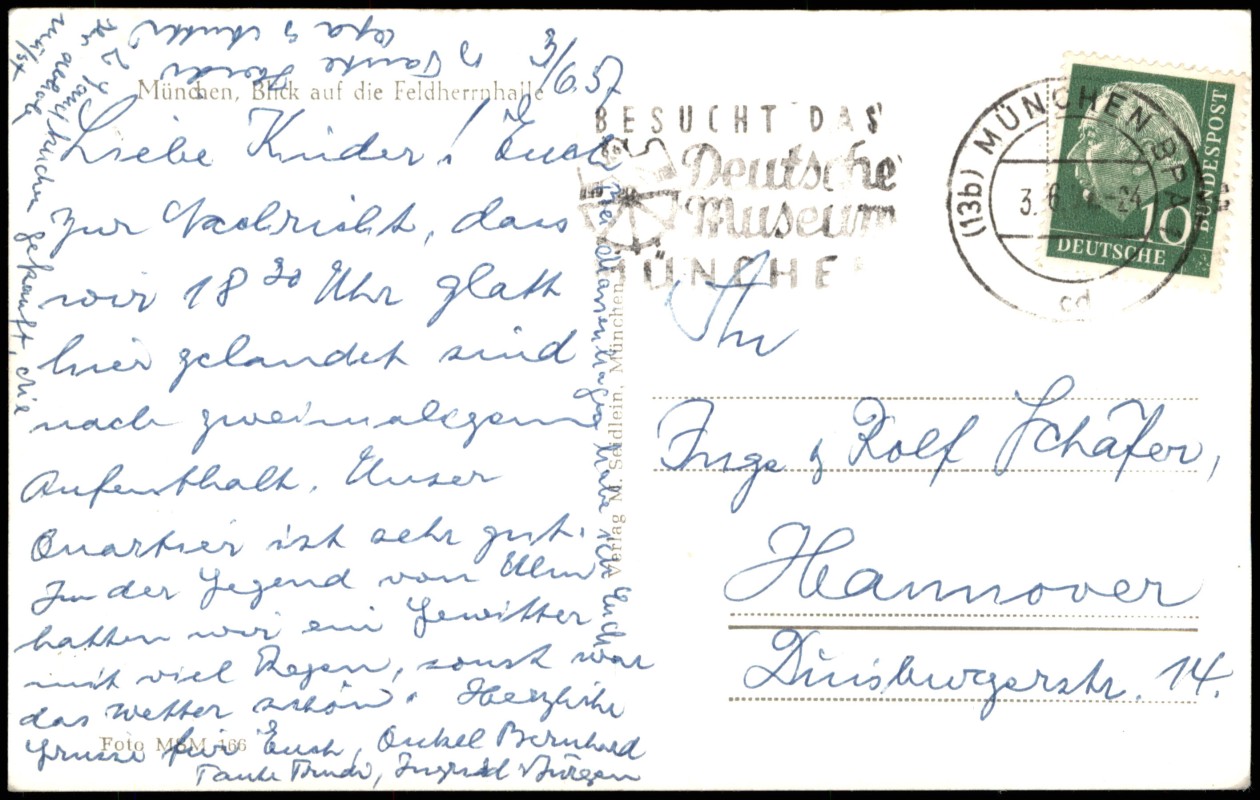 3/6.57
München, Blick auf die Feldherrnhalle
Liebe Kinder! Euch
zur Nachricht, dass
wir 18 30 Uhr glatt
hier gelandet sind
nach zweimaligem
Aufenthalt. Unser
Quartier ist sehr gut.
In der Gegend von Ulm
hatten wir ein Gewitter
mit viel Regen, sonst war
das Wetter schön. Herzliche
Grüsse für Euch, Onkel Bernhard
Tante Trudi, Ingrid Jürgen
Foto MSM 166
habe ich Euch
gekauft, die
Tante
Opa
Verlag M. Seidlein, München
BESUCHT DAS
Deutsche
Museum
MÜNCHE
(13b) MÜNCHEN BPA
3. 6 -24
cd
10
DEUTSCHE
BUNDESPOST
An
Inge & Rolf Schäfer,
Hannover
Duisburgerstr. 14.